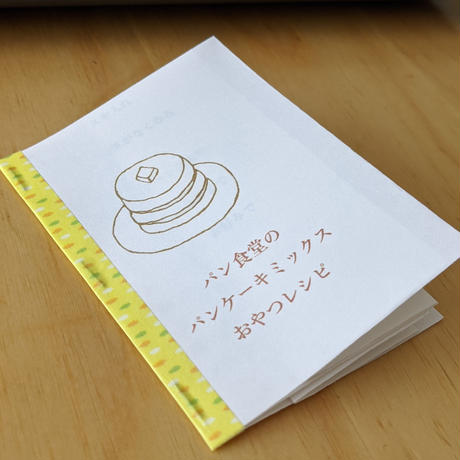 パン食堂の
パンケーキミックス
おやつレシピ